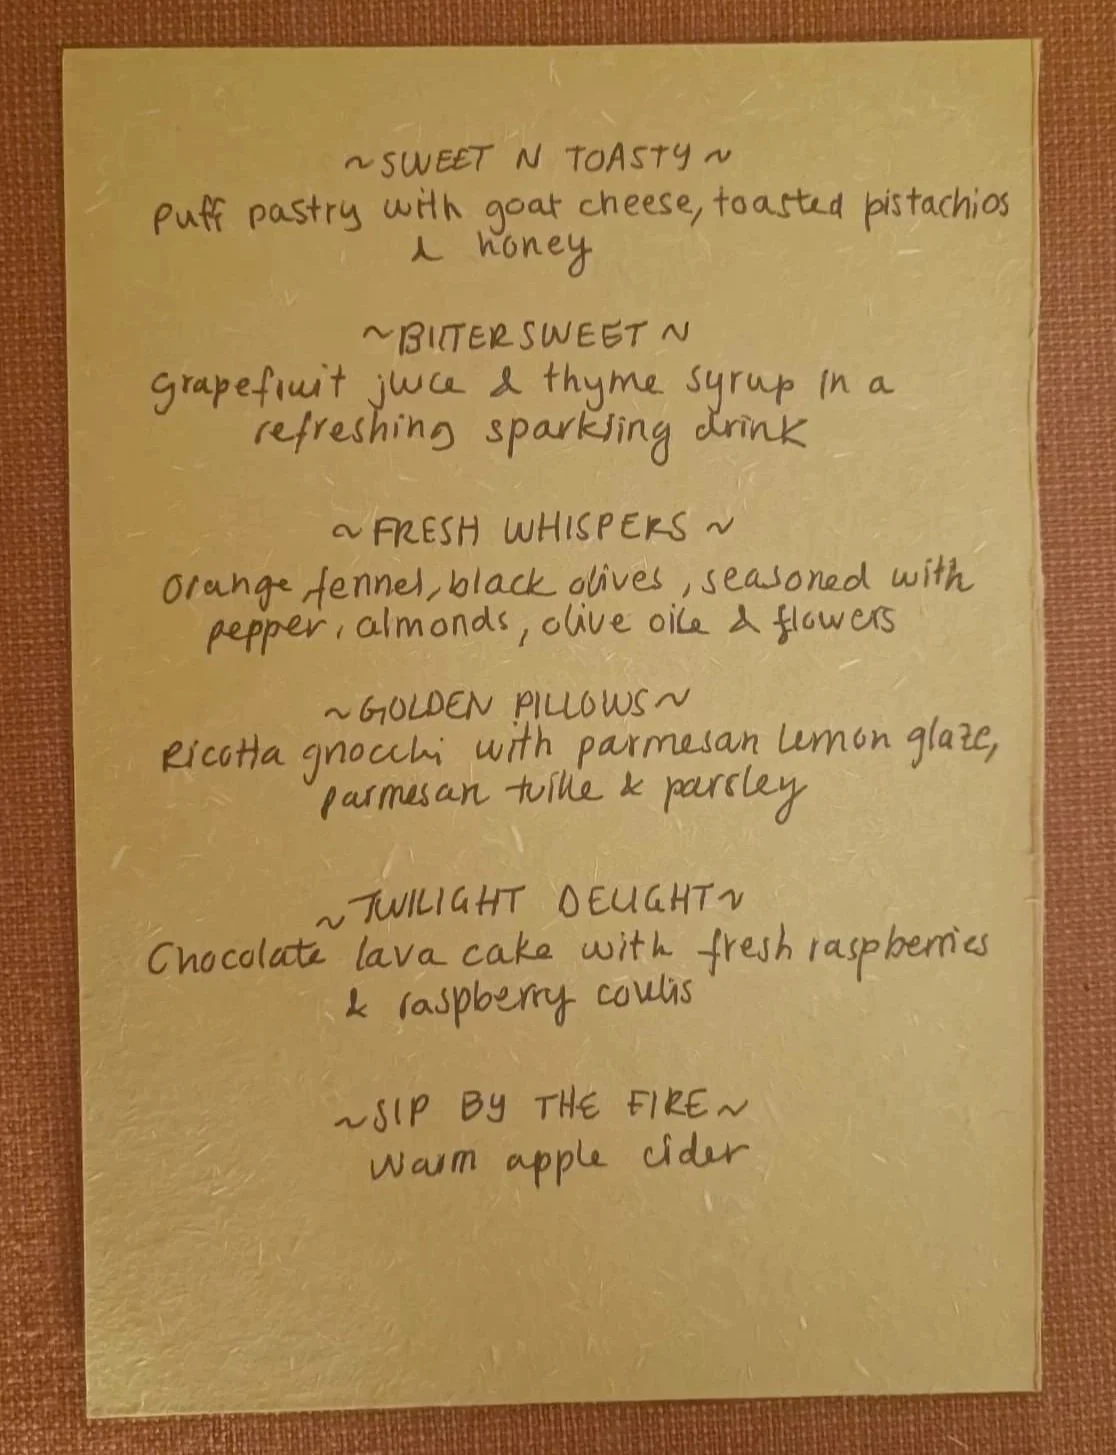 ~SWEET N TOASTY~
Puff pastry with goat cheese, toasted pistachios
& honey
~BITTERSWEET~
Grapefruit juice & thyme syrup in a
refreshing sparkling drink
~FRESH WHISPERS~
Orange, fennel, black olives, seasoned with
pepper, almonds, olive oile & flowers
~GOLDEN PILLOWS~
Ricotta gnocchi with parmesan lemon glaze,
parmesan tuille & parsley
~TWILIGHT DELIGHT~
Chocolate lava cake with fresh raspberries
& raspberry coulis
~SIP BY THE FIRE~
Warm apple cider